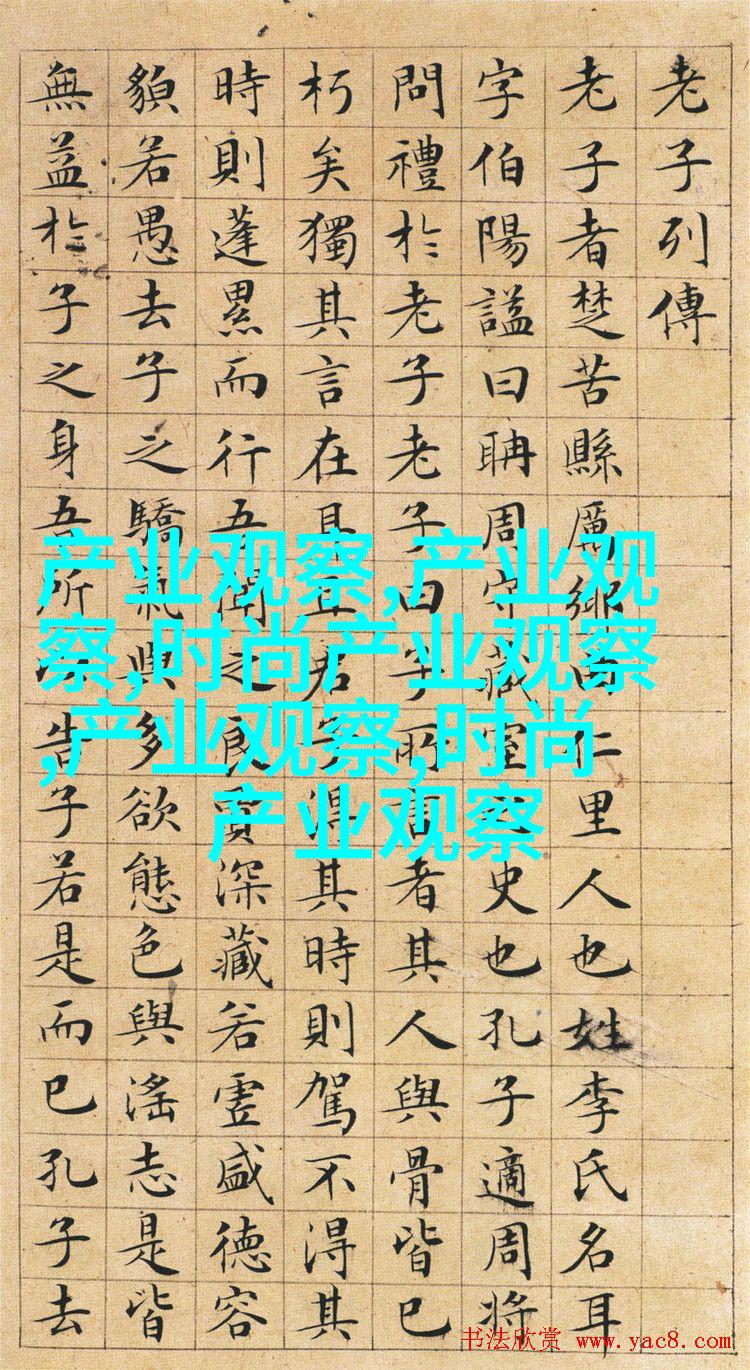 老子列傳
老子者楚苦縣厲鄉曲仁里人也姓李氏名耳
字伯陽謚曰聃周守藏室之史也孔子適周將
問禮於老子老子曰子所言者其人與骨皆已
朽矣獨其言在耳且君子得其時則駕不得其
時則蓬累而行吾聞之良賈深藏若虛盛德容
䫉若愚去子之驕氣與多欲態色與滛志是皆
無益於子之身吾所以告子若是而已孔子去
产业观察,产业观
察,时尚产业观察
,产业观察,时尚
产业观察
书法欣赏 www.yac8.com